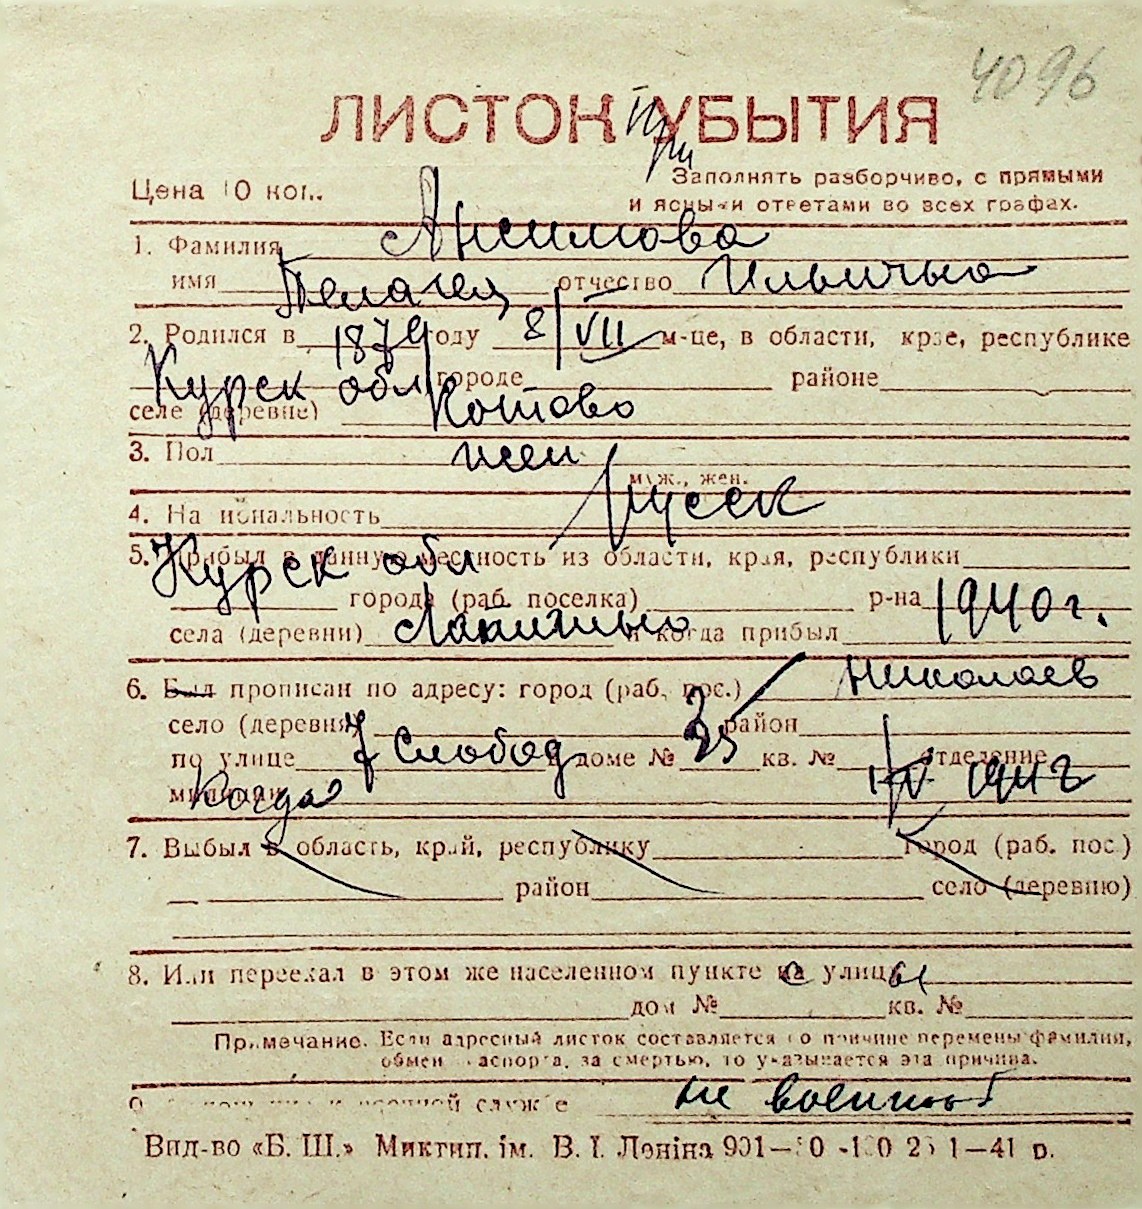 4096
ЛИСТОК При УБЫТИЯ
Цена 10 коп.
Заполнять разборчиво, с прямыми
и ясными ответами во всех графах.
1. Фамилия Ансимова
имя Пелагея отчество Ильинична
2. Родился в 1879 году 8/VII м-це, в области, крае, республике
Курск обл городе районе
селе (деревне) Котово
3. Пол жен
муж., жен.
4. Национальность русск
5. Прибыл в данную местность из области, края, республики
Курск обл города (раб. поселка) р-на
села (деревни) и когда прибыл 1940 г.
6. Был прописан по адресу: город (раб. пос.) Николаев
село (деревня) район
по улице 7 Слобод в доме № 35 кв. № отделение
милиции Когда 1/IV 1941 г
7. Выбыл в область, край, республику город (раб. пос.)
район село (деревню)
8. Или переехал в этом же населенном пункте с улицы
дом № кв. №
Примечание. Если адресный листок составляется по причине перемены фамилии,
обмен паспорта, за смертью, то указывается эта причина.
9. к военной службе не военнооб
Вид-во «Б. Ш.» Миктип. ім. В. І. Леніна 901—41 р.